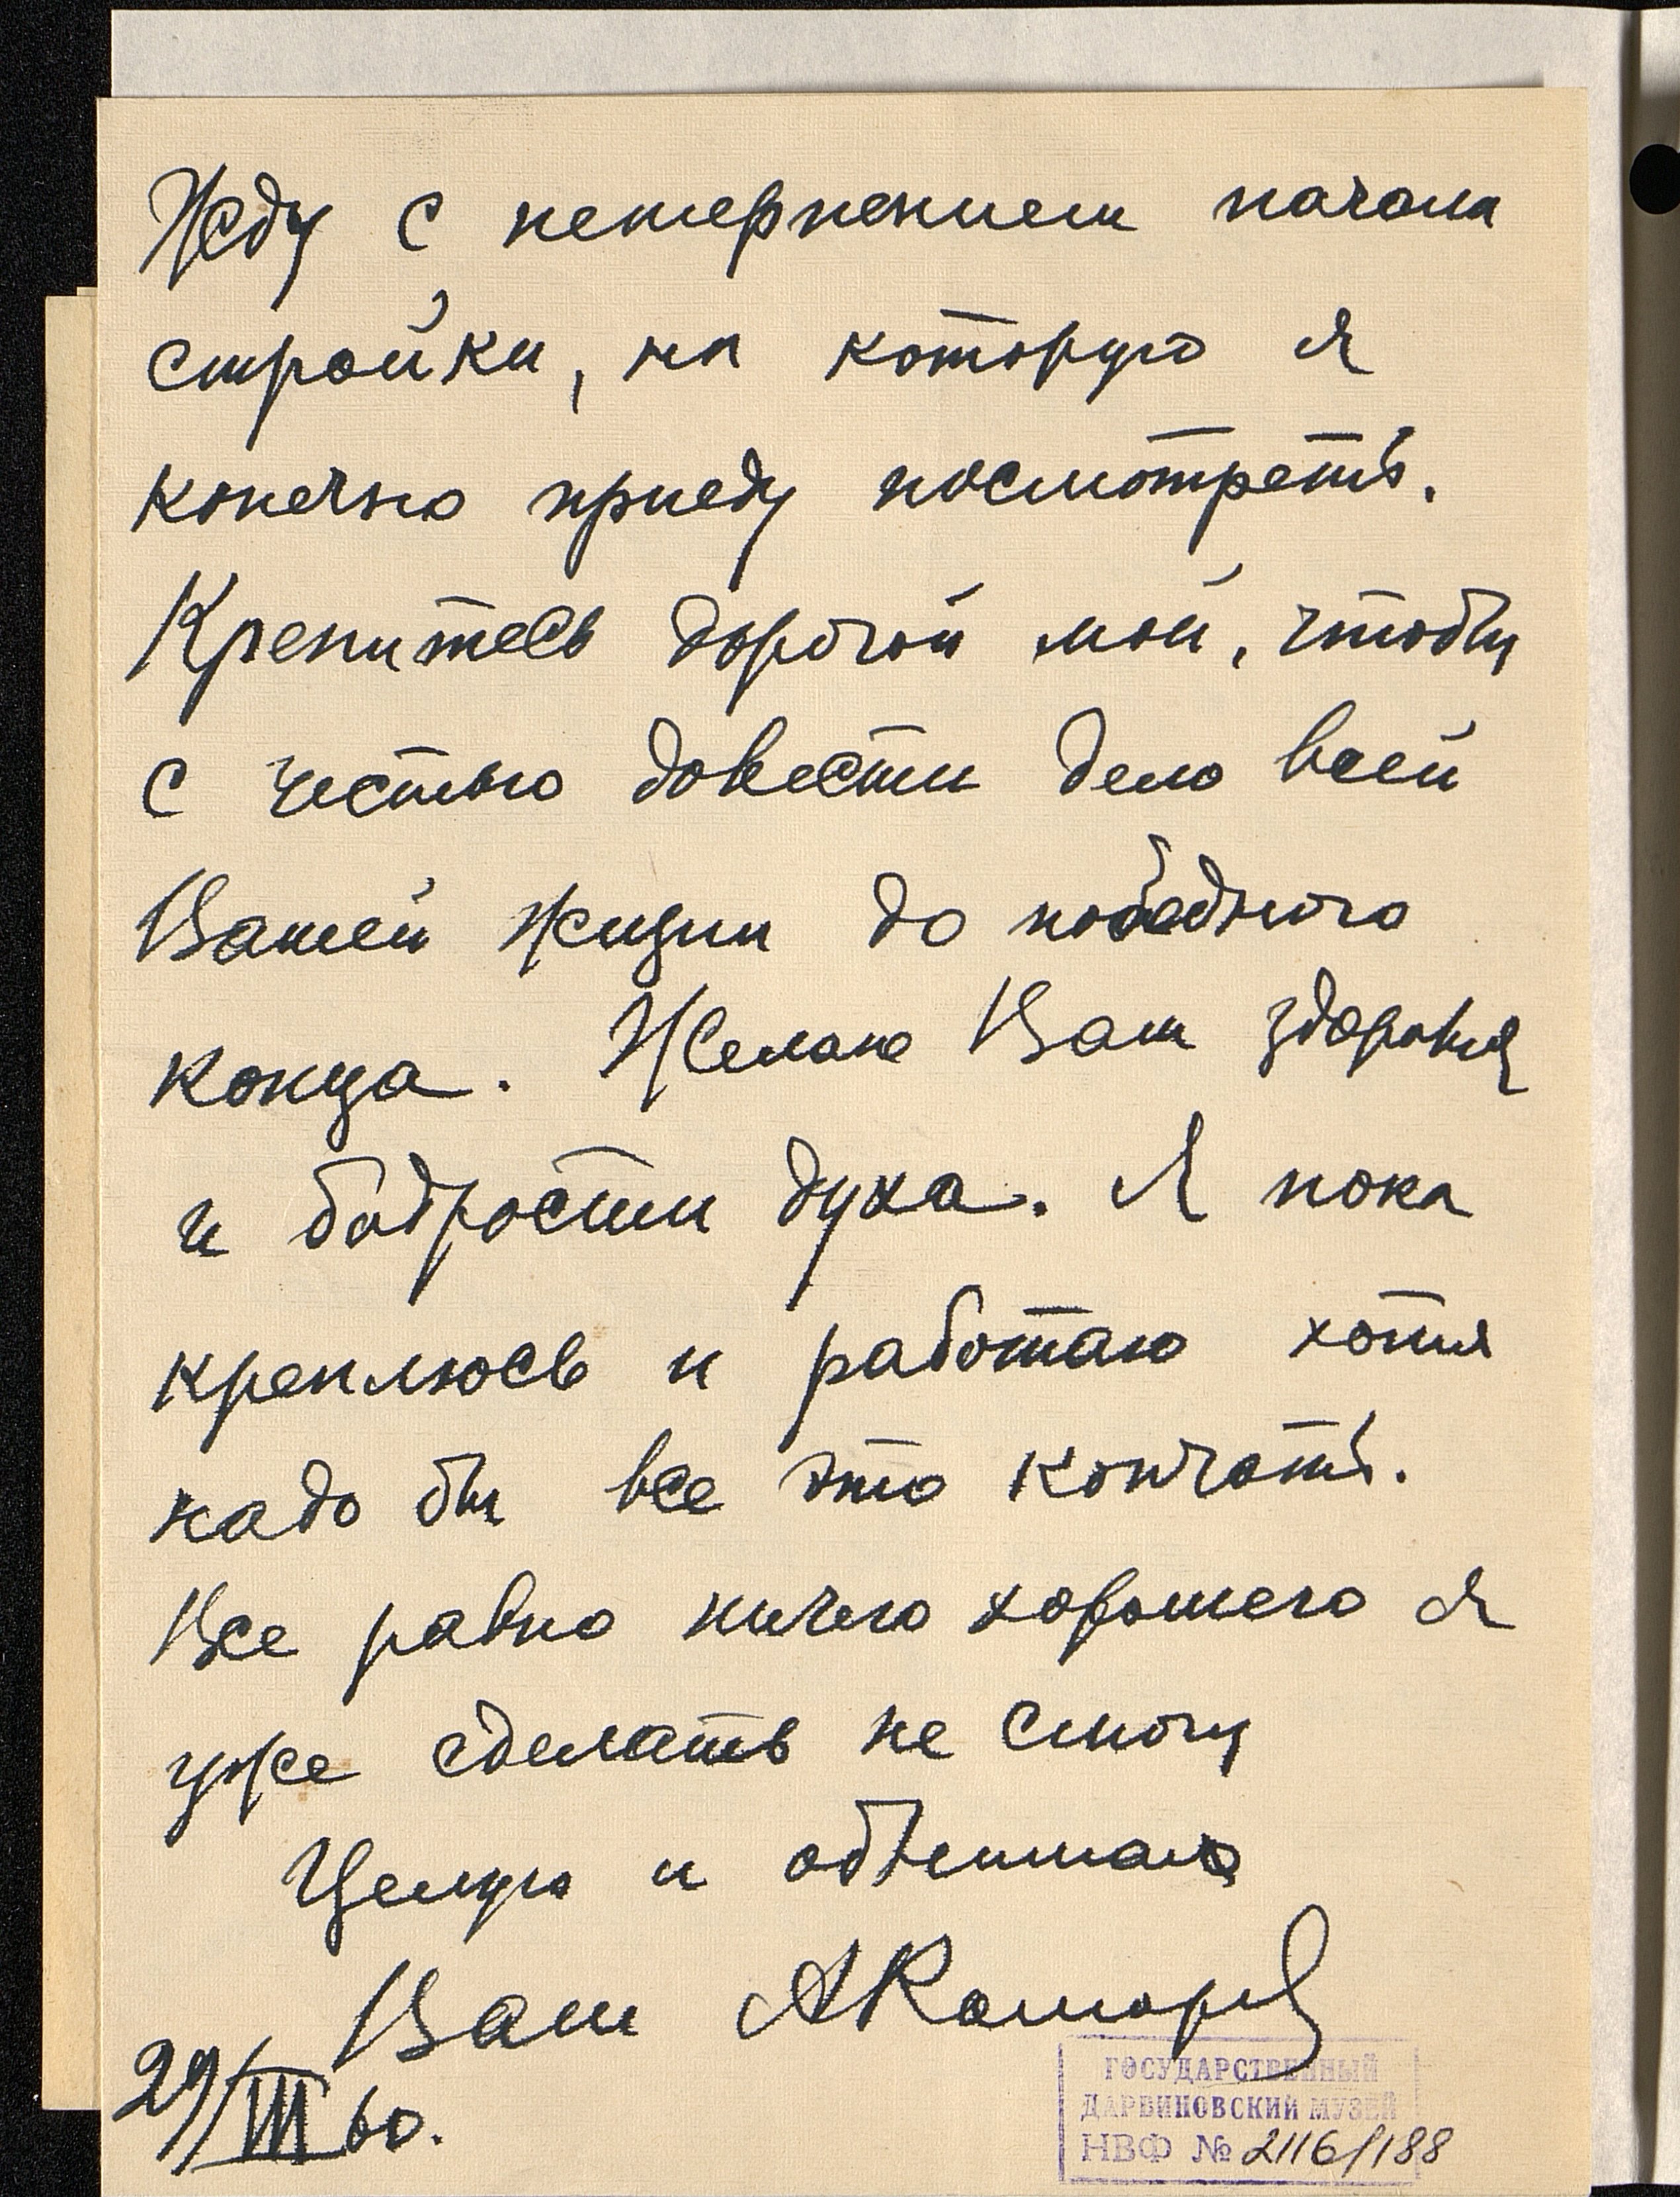 Жду с нетерпением начала
стройки, на которую я
конечно приеду посмотреть.
Крепитесь дорогой мой, чтобы
с честью довести дело всей
Вашей жизни до победного
конца. Желаю Вам здоровья
и бодрости духа. Я пока
креплюсь и работаю хотя
надо бы все это кончать.
Все равно ничего хорошего я
уже сделать не смогу
Целую и обнимаю
Ваш АКомаров
29/III 60.
ГОСУДАРСТВЕННЫЙ
ДАРВИНОВСКИЙ МУЗЕЙ
НВФ № 2116/188